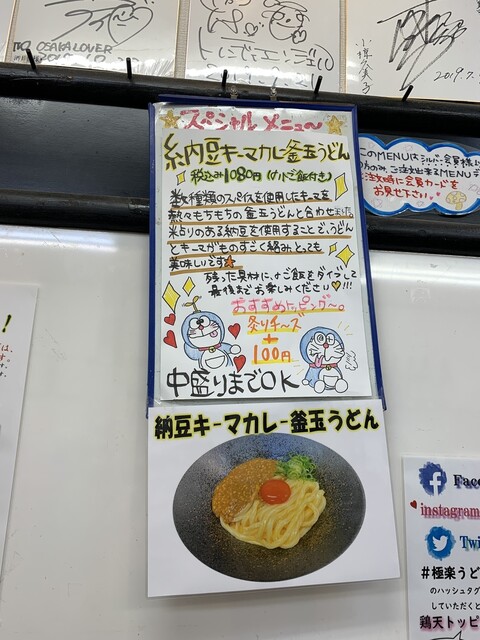 OSAKA LOVER
2019.7.
スペシャルメニュ〜
納豆キーマカレー釜玉うどん
税込み1080円(小ご飯付き)
数種類のスパイスを使用したキーマを
熱々もちもちの釜玉うどんと合わせました。
粘りのある納豆を使用することで、うどん
とキーマがものすごく絡みとっても
美味しいです
残った具材に、小ご飯をダイブして
最後までお楽しみください♡!!!
おすすめトッピング〜。
炙りチーズ
+
100円
中盛りまでOK
納豆キーマカレー釜玉うどん
このMENUはシルバー会員様に
のみ、ご注文出来るMENUです
ご注文時に会員カードを
お見せ下さい。
Face
instagram
Twi
#極楽うど
のハッシュタグ
していただくと
鶏天トッピ